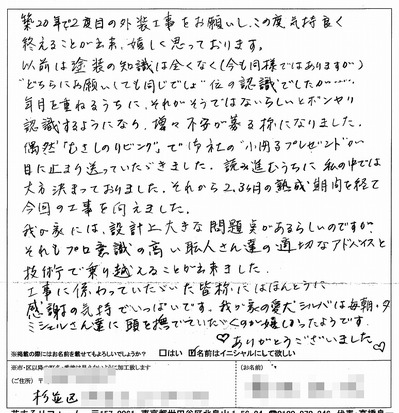 築20年で2度目の外装工事をお願いし、この度気持良く
終えることが出来、嬉しく思っております。
以前は塗装の知識は全くなく(今も同様ではありますが)
"どちらにお願いしても同じでしょ"位の認識でしたが……
年月を重ねるうちに、それがそうではないらしいとボンヤリ
認識するようになり、増々不安が募る様になりました。
偶然"むさしのリビング"で御社の"小冊子プレゼント"が
目に止まり送っていただきました。読み進むうちに私の中では
大方決まっておりました。それから2,3ヶ月の熟成期間を経て
今回の工事を迎えました。
我が家には、設計上大きな問題点があるらしいのですが、
それもプロ意識の高い職人さん達の適切なアドバイスと
技術で乗り越えることが出来ました。
工事に係わっていただいた皆様にはほんとうに
感謝の気持でいっぱいです。我が家の愛犬シルバは毎朝・夕
ミシェルさん達に頭を撫でていただくのが嬉しかったようです。
♡ありがとうございました♡
※掲載の際にはお名前を載せてもよろしいでしょうか? □はい ☑名前はイニシャルにして欲しい
(ご住所) 〒
(お名前)
杉並区